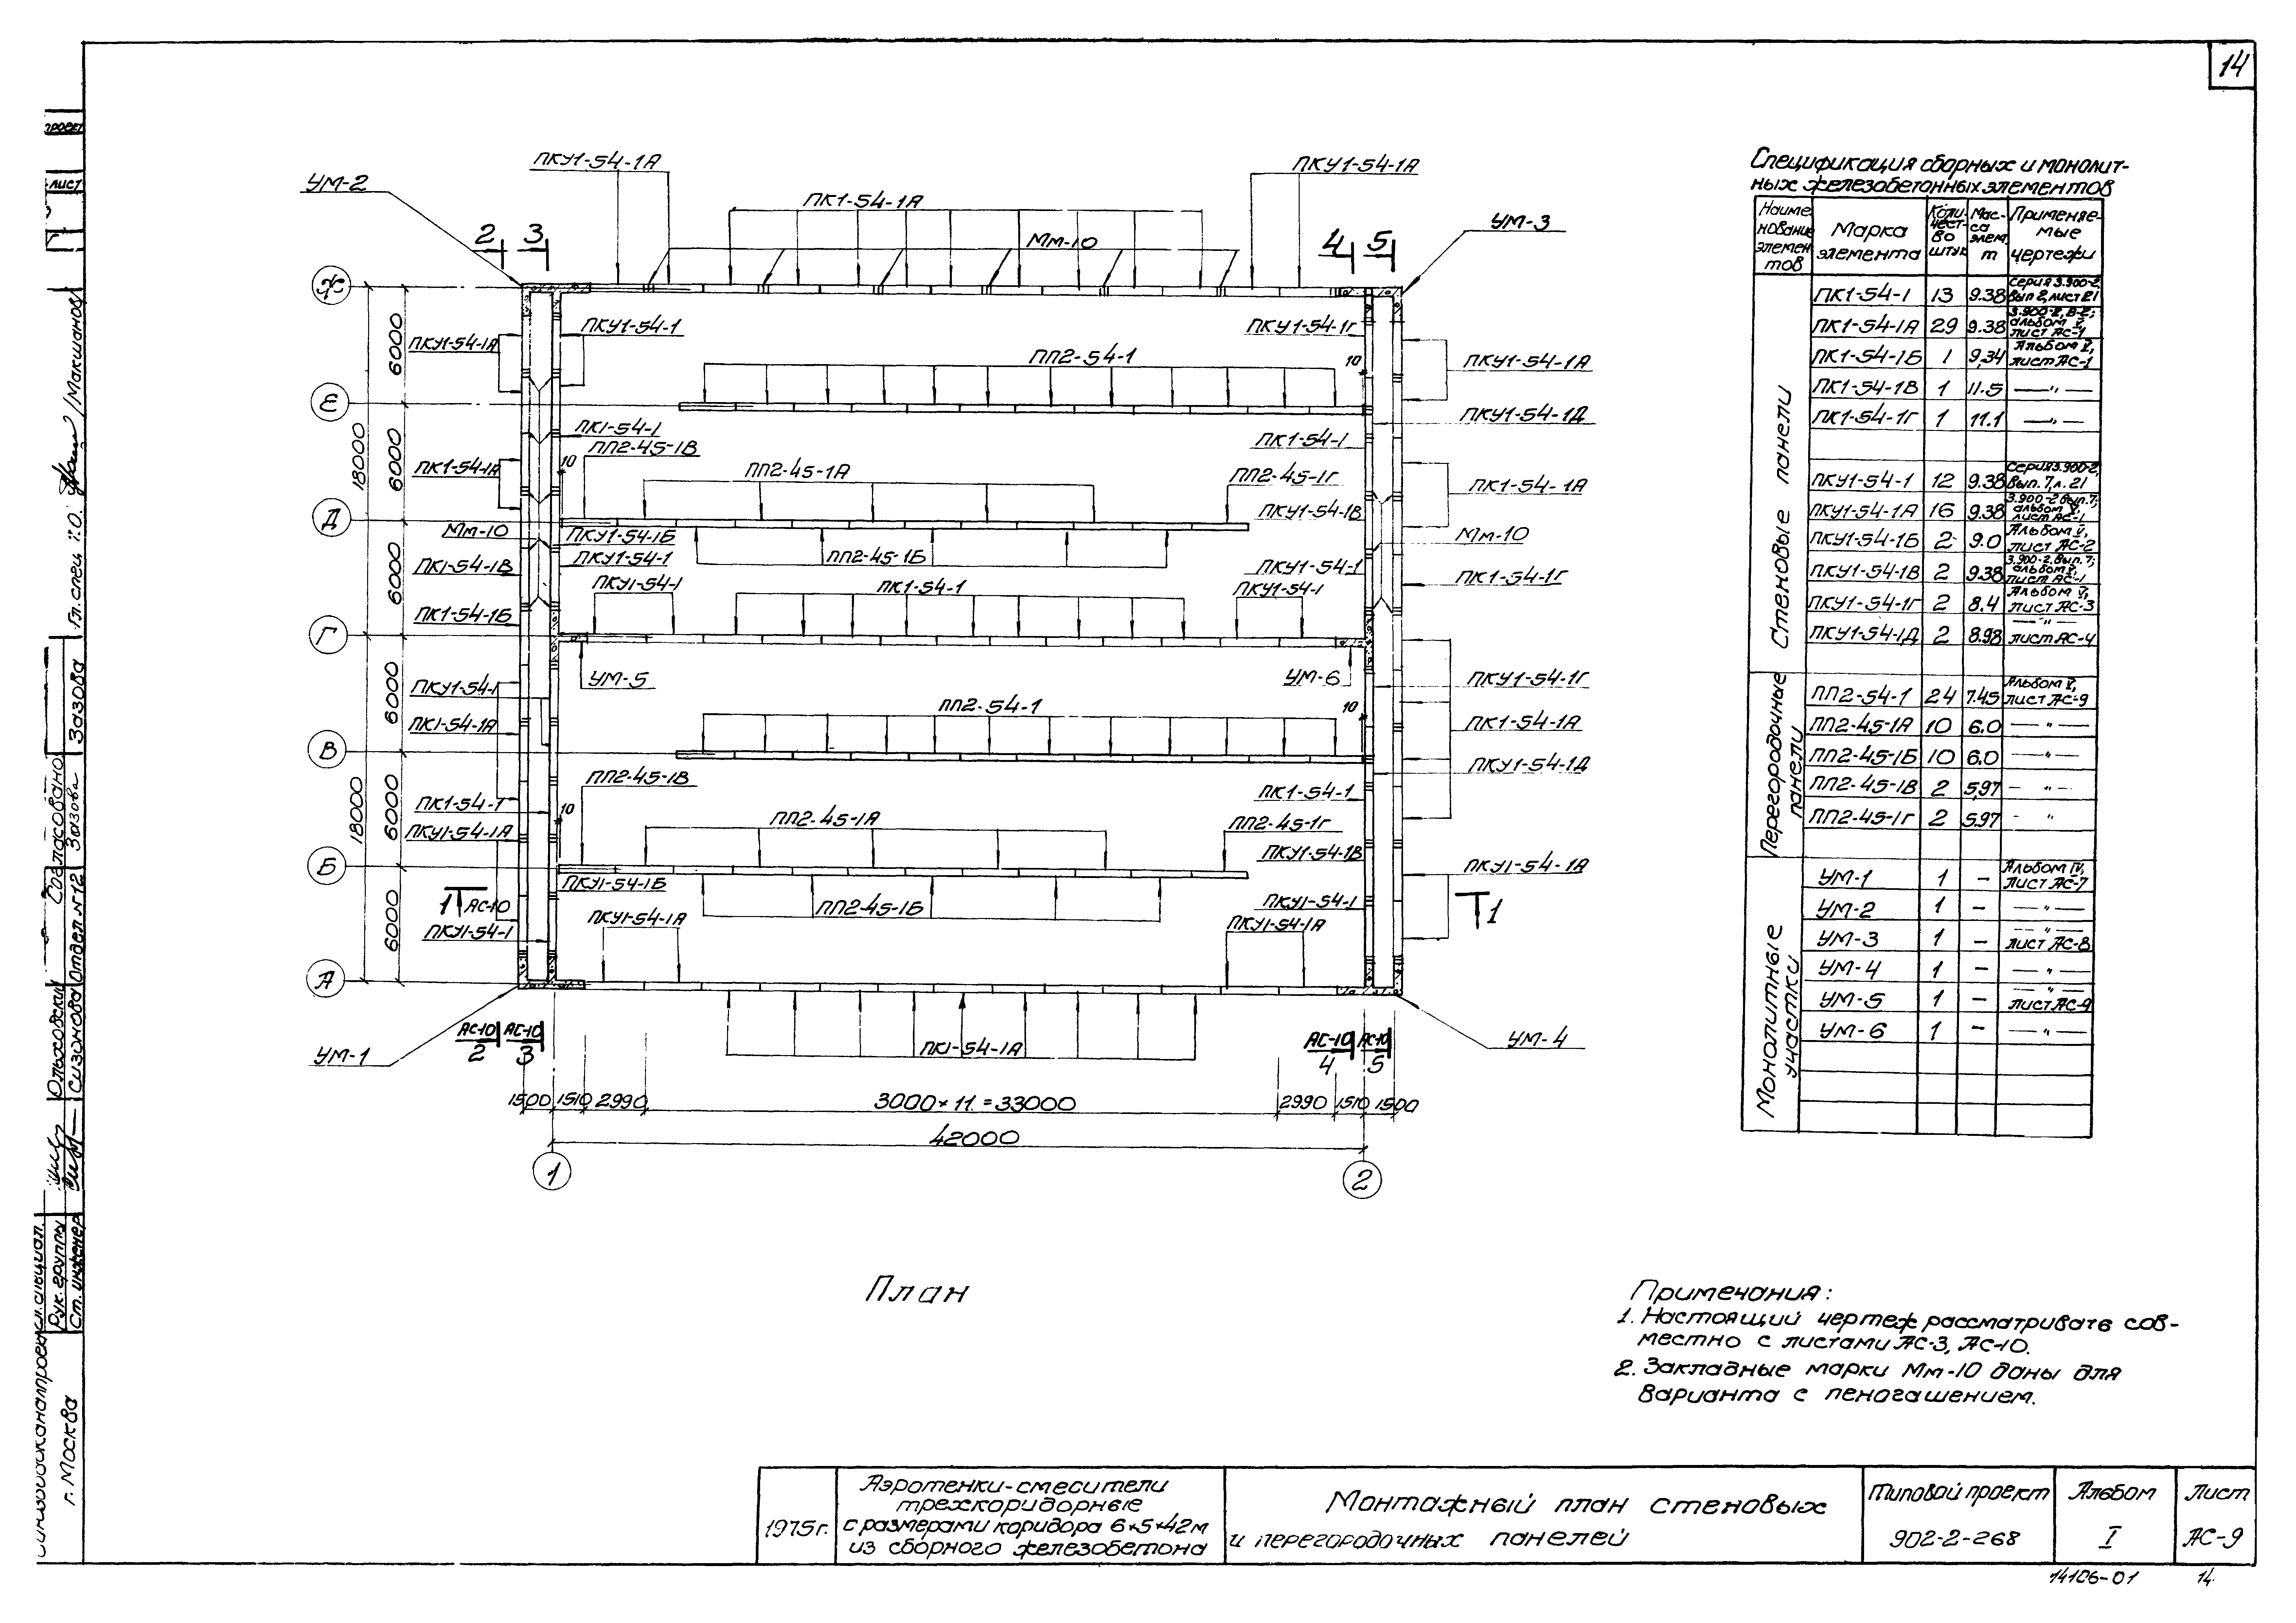 14
ПКУ1-54-1А
ПКУ1-54-1А
УМ-2
ПК1-54-1А
УМ-3
2 3
Мм-10
4 5
Ж
ПКУ1-54-1
ПКУ1-54-1Г
ПКУ1-54-1А
6000
ПП2-54-1
10
ПКУ1-54-1А
Е
ПКУ1-54-1Д
ПК1-54-1
ПК1-54-1
18000
6000
ПП2-45-1В
10
ПК1-54-1А
ПП2-45-1А
ПП2-45-1Г
ПК1-54-1А
Д
ПКУ1-54-1В
Мм-10
ПКУ1-54-1Б
Мм-10
ПКУ1-54-1
ПП2-45-1Б
ПК1-54-1В
6000
ПКУ1-54-1
ПК1-54-1
ПКУ1-54-1
ПКУ1-54-1
ПК1-54-1Г
ПК1-54-1Б
Г
УМ-5
УМ-6
ПКУ1-54-1Г
ПКУ1-54-1
6000
ПП2-54-1
10
ПК1-54-1А
ПК1-54-1А
В
ПКУ1-54-1Д
ПП2-45-1В
ПК1-54-1
18000
6000
ПК1-54-1
10
ПП2-45-1А
ПП2-45-1Г
ПКУ1-54-1А
ПКУ1-54-1В
Б
ПКУ1-54-1А
ПКУ1-54-1Б
1 АС-10
ПП2-45-1Б
ПКУ1-54-1
1
6000
ПКУ1-54-1А
ПКУ1-54-1А
ПКУ1-54-1
А
АС-10 АС-10
2 3
АС-10 АС-10
4 5
УМ-1
ПК1-54-1А
УМ-4
1500 1510 2990 3000×11=33000 2990 1510 1500
42000
1 2
План
Спецификация сборных и монолит-
ных железобетонных элементов
Наиме-
нование
элемен-
тов
Марка
элемента
Коли-
чест-
во
штук
Мас-
са
элем.
т
Применяе-
мые
чертежи
Стеновые панели
ПК1-54-1 13 9.38 Серия 3.900-2, Вып 2, лист 21
ПК1-54-1А 29 9.38 3.900-2, В-2; альбом V, лист АС-1
ПК1-54-1Б 1 9,34 Альбом V, лист АС-1
ПК1-54-1В 1 11.5 —"—
ПК1-54-1Г 1 11.1 —"—
ПКУ1-54-1 12 9.38 Серия 3.900-2, Вып. 7, л. 21
ПКУ1-54-1А 16 9.38 3.900-2 Вып. 7; альбом V, лист АС-1
ПКУ1-54-1Б 2 9.0 Альбом V, лист АС-2
ПКУ1-54-1В 2 9.38 3.900-2. Вып. 7; альбом V, лист АС-1
ПКУ1-54-1Г 2 8.4 Альбом V, лист АС-3
ПКУ1-54-1Д 2 8.98 —"— лист АС-4
Перегородочные панели
ПП2-54-1 24 7.45 Альбом V, лист АС-9
ПП2-45-1А 10 6.0 —"—
ПП2-45-1Б 10 6.0 —"—
ПП2-45-1В 2 5,97 —"—
ПП2-45-1Г 2 5.97 —"
Монолитные участки
УМ-1 1 — Альбом IV, лист АС-7
УМ-2 1 — —"—
УМ-3 1 — —"— лист АС-8
УМ-4 1 — —"—
УМ-5 1 — —"— лист АС-9
УМ-6 1 — —"—
Примечания:
1. Настоящий чертеж рассматривать сов-
местно с листами АС-3, АС-10.
2. Закладные марки Мм-10 даны для
варианта с пеногашением.
1975г.
Аэротенки-смесители
трехкоридорные
с размерами коридора 6×5×42м
из сборного железобетона
Монтажный план стеновых
и перегородочных панелей
Типовой проект
902-2-268
Альбом
I
Лист
АС-9
14106-01 14
лист
Гл. спец. т.о. /Макшанов
Согласовано:
Отдел №12 Зазова Зазова
Рук. группы Ольховский
Ст. инженер Сизонова
г. Москва